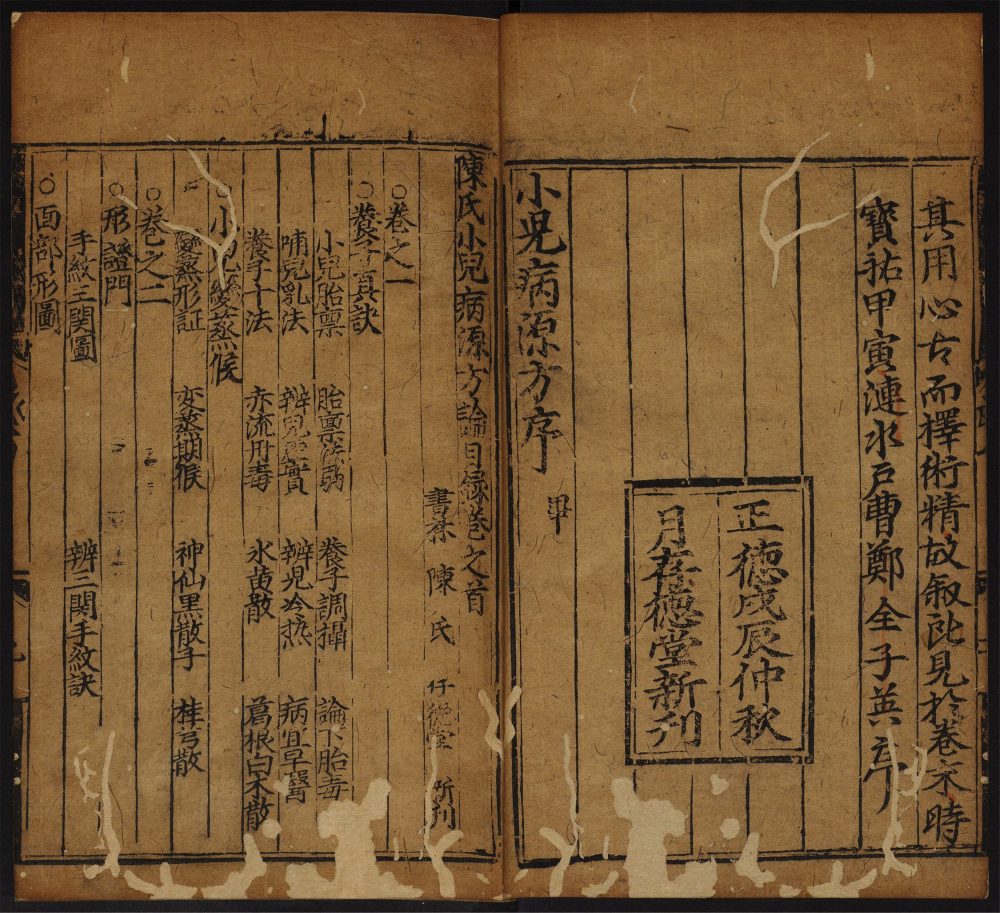 其用心古而擇術精故敘所見於卷末時
寶祐甲寅漣水戶曹鄭全子英序
正德戊辰仲秋
月存德堂新刊
小兒病源方序 畢
陳氏小兒病源方論目録卷之首
書林 陳氏 存德堂 新刊
○卷之一
○養子真訣
小兒胎禀 胎禀怯弱 養子調攝 論下胎毒
哺兒乳法 辨兒虛實 辨兒冷热 病宜早醫
養子十法 赤流丹毒 氷黄散 葛根白术散
○小兒變蒸候
變蒸形証 变蒸期候 神仙黑散子 桂芎散
○卷之二
○形證門
手紋三関圖 辨三関手紋訣
○面部形圖